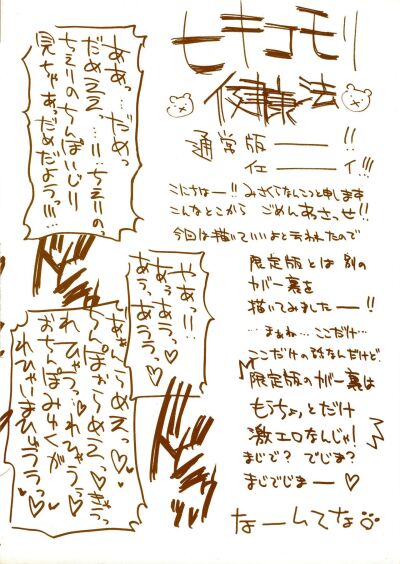 ヒキコモリ
健康法
通常版――!!
イェ――イ!!!
こにさわー!! みさくらなんこつと申します
こんなとこから ごめんあさっせ!!
今回は描いていいよと言われたので
限定版とは別の
カバー裏を
描いてみましたー!!
…まぁね…ここだけ…
ここだけの話なんだけど
限定版のカバー裏は
もうちょっとだけ
激エロなんじゃ!
まじで? でじま?
まじでじまー♡
なーんてな
ああっ…だめっ
だめええっ…!!ちえりの
ちえりのちんぽいじり
見ちゃあっだめだようっ!!!
やあっ!!
あうっあうっ♡
あうっあううっ♡
あぁんらめえっ♡♡
ちんぽぉらめえっ♡
れひゃうっ♡れひゃうっ♡
おちんぽみるくが
れひゃいまひゅううっ♡♡